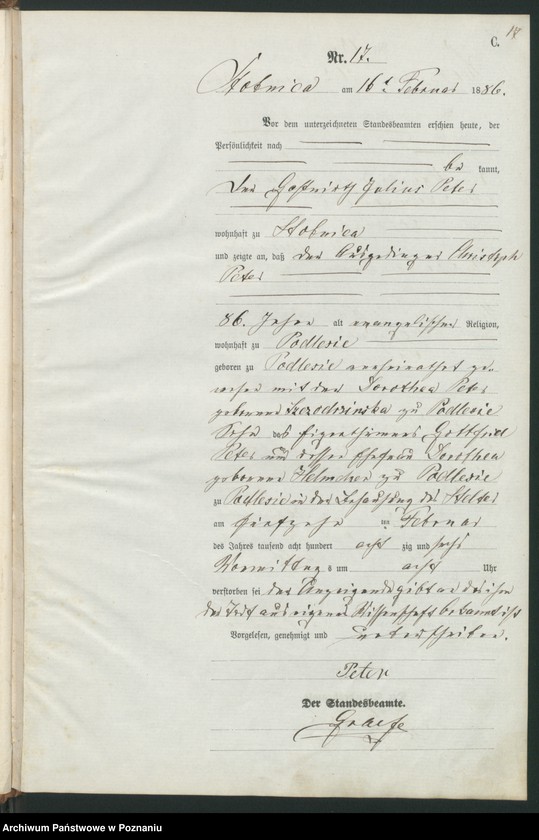 C.
Nr. 17.
Stobnica am 16t Februar 1886.
Vor dem unterzeichneten Standesbeamten erschien heute, der
Persönlichkeit nach
be kannt,
der Gastwirth Julius Peter
wohnhaft zu Stobnica
und zeigte an, daß der Ausgedinger Christoph
Peter
86. Jahre alt evangelischer Religion,
wohnhaft zu Podlesie
geboren zu Podlesie verheirathet ge-
wesen mit der Dorothea Peter
geborene zu Podlesie
Sohn des Eigenthümers Gottfried
Peter und dessen Ehefrau Dorothea
geborene Helmchen zu Podlesie
zu Podlesie in der Behausung des
am fünfzehn ten Februar
des Jahres tausend acht hundert acht zig und sechs
Vormittags um acht Uhr
verstorben sei der Anzeigende gibt an daß ihm
der Tod aus eigener Wissenschaft bekannt ist
Vorgelesen, genehmigt und unterschrieben.
Peter
Der Standesbeamte.
Graefe
Archiwum Państwowe w Poznaniu